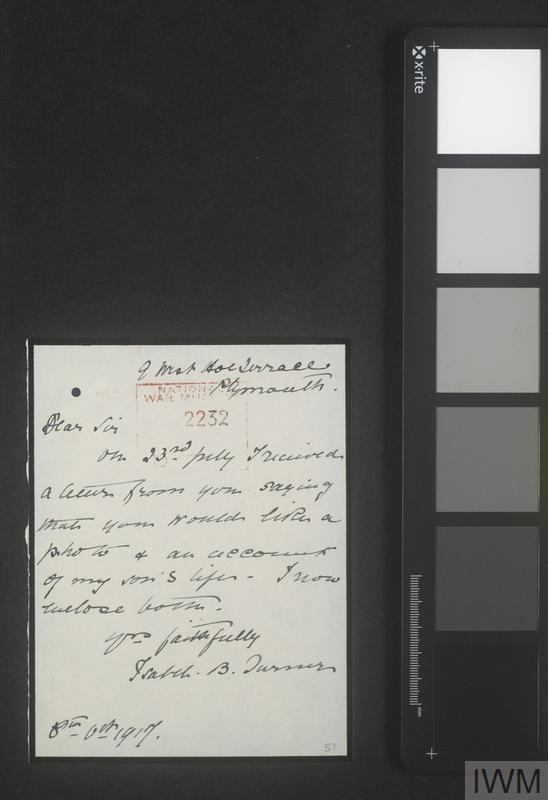 9 West Hoe Terrace
Plymouth.
NATIONAL
WAR MUSEUM
2232
Dear Sir
On 23rd July I received
a letter from you saying
that you would like a
photo & an account
of my son's life - I now
enclose both.
Yrs faithfully
Isabel. B. Turner
8th Oct 1917.
51
x-rite
mm
IWM